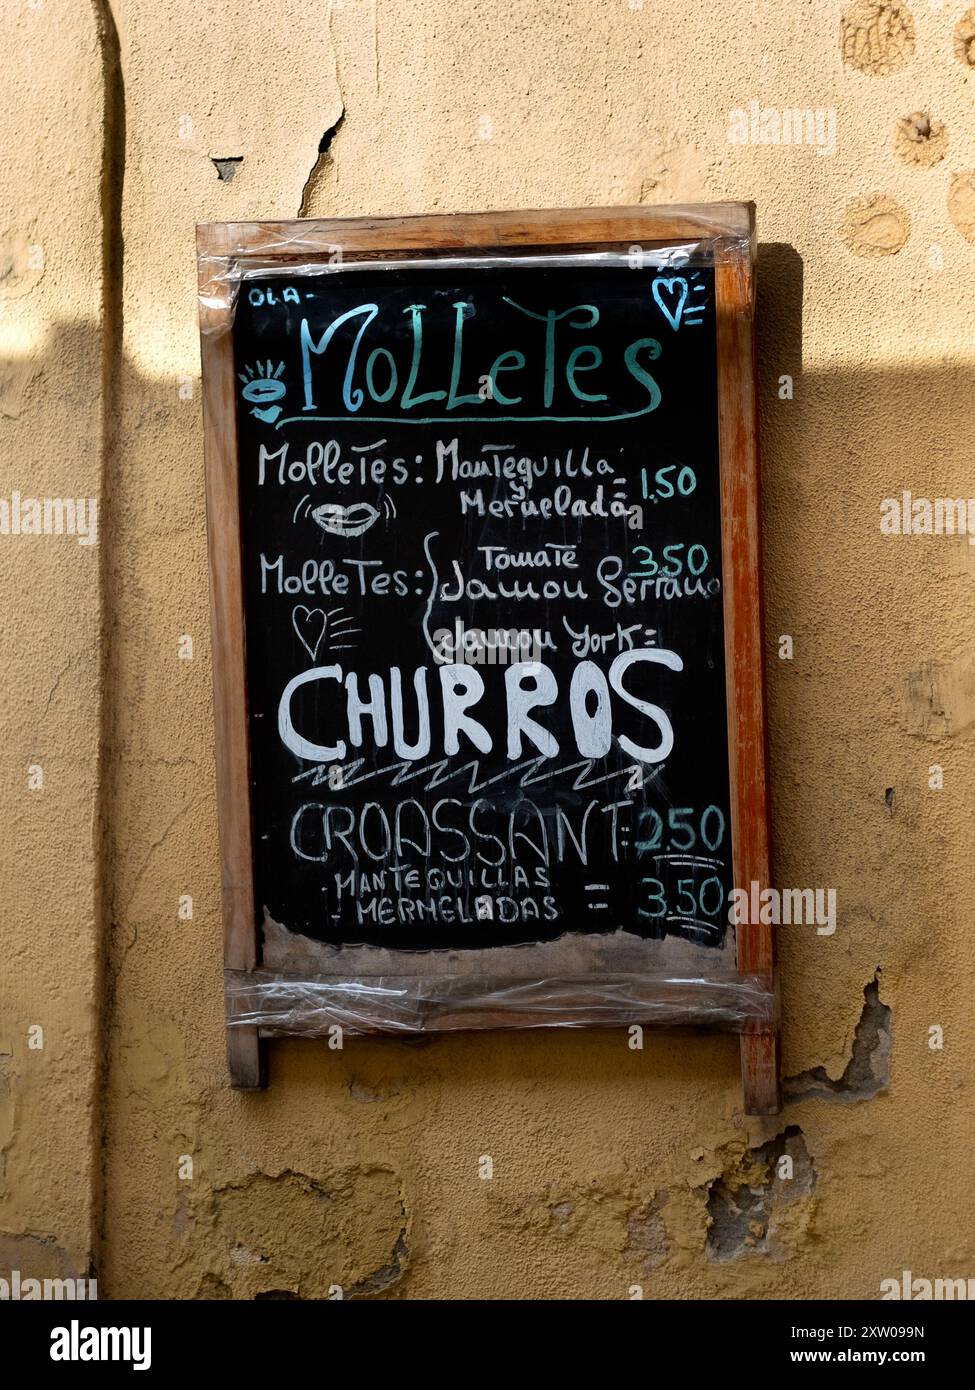 OLA-
MOLLETES
MOLLETES: MANTEQUILLA
Y = 1,50
MERMELADA
TOMATE 3.50
MOLLETES: { JAMON SERRANO
JAMON YORK =
CHURROS
CROASSANT = 2.50
- MANTEQUILLAS
- MERMELADAS = 3.50
alamy
Image ID: 2XW099N
www.alamy.com